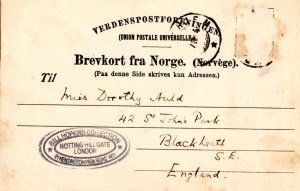 VERDENSPOSTFORENINGEN
(UNION POSTALE UNIVERSELLE)
Brevkort fra Norge. (Norvège).
(Paa denne Side skrives kun Adressen.)
Til
Miss Dorothy Auld
42 St John's Park
Blackheath
S.E.
England.
BILL HOPKINS COLLECTION
NOTTING HILL GATE
LONDON